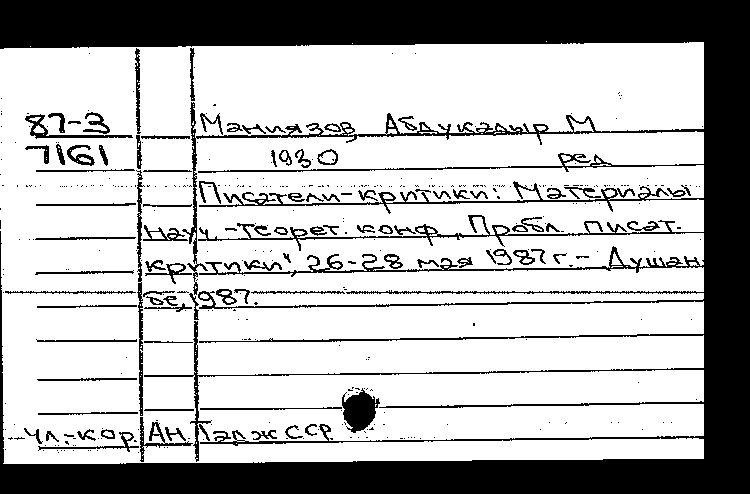 87-3 Маниязов, Абдукадыр М
7161 1930 ред.
Писатели-критики: Материалы
науч.-теорет. конф. „Пробл. писат.
критики", 26-28 мая 1987 г. - Душан-
бе, 1987.
чл.-кор. АН ТаджССР